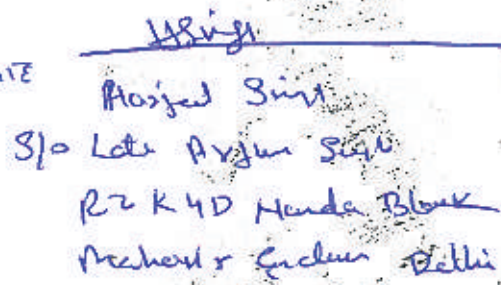 HSingh
Harjeet Singh
S/o Late Arjun Singh
RZ K 4D Nanda Block
Mahavir Enclave Delhi